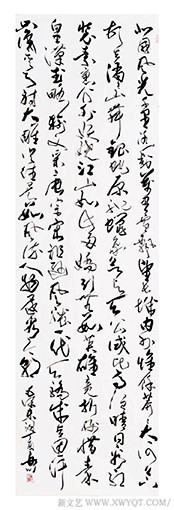 北国风光千里冰封万里雪飘望长城内外惟余莽莽大河上
下顿失滔滔山舞银蛇原驰蜡象欲与天公试比高须晴日看红
装素裹分外妖娆江山如此多娇引无数英雄竞折腰惜秦
皇汉武略输文采唐宗宋祖稍逊风骚一代天骄成吉思汗
只识弯弓射大雕俱往矣数风流人物还看今朝
毛泽东词
新文艺 WWW.XWYQT.COM